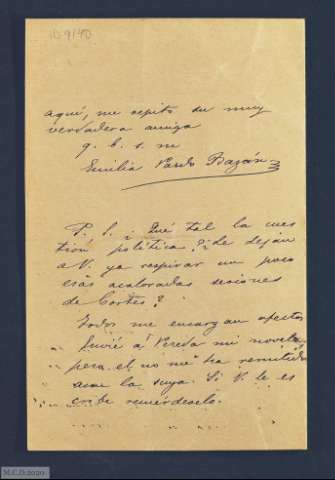 10.9/40
aquí, me repito su muy
verdadera amiga
q. b. s. m
Emilia Pardo Bazán
P. S. ¿Qué tal la cues
tión política? ¿Le dejan
a V. ya respirar un poco
esas acaloradas sesiones
de Cortes?
Todos me encargan afectos
Envié á Pereda mi novela,
pero el no me ha remitido
aun la suya. Si V. le es
cribe recuerdeselo.